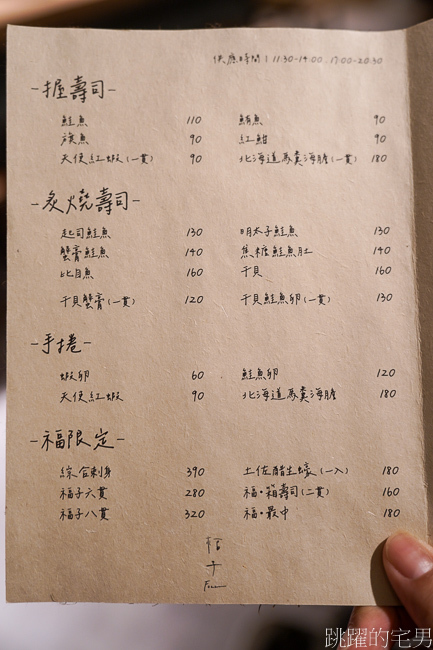 供應時間 | 11:30-14:00 . 17:00-20:30
-握壽司-
鮭魚 110 鮪魚 90
旗魚 90 紅魽 90
天使紅蝦(一貫) 90 北海道馬糞海膽(一貫) 180
-炙燒壽司-
起司鮭魚 130 明太子鮭魚 130
蟹膏鮭魚 140 焦糖鮭魚肚 140
比目魚 160 干貝 160
干貝蟹膏(一貫) 120 干貝鮭魚卵(一貫) 130
-手捲-
蝦卵 60 鮭魚卵 120
天使紅蝦 90 北海道馬糞海膽 180
-福限定-
綜合刺身 390 土佐醋生蠔(一入) 180
福子六貫 280 福·箱壽司(二貫) 160
福子八貫 320 福·最中 180
跳躍的宅男